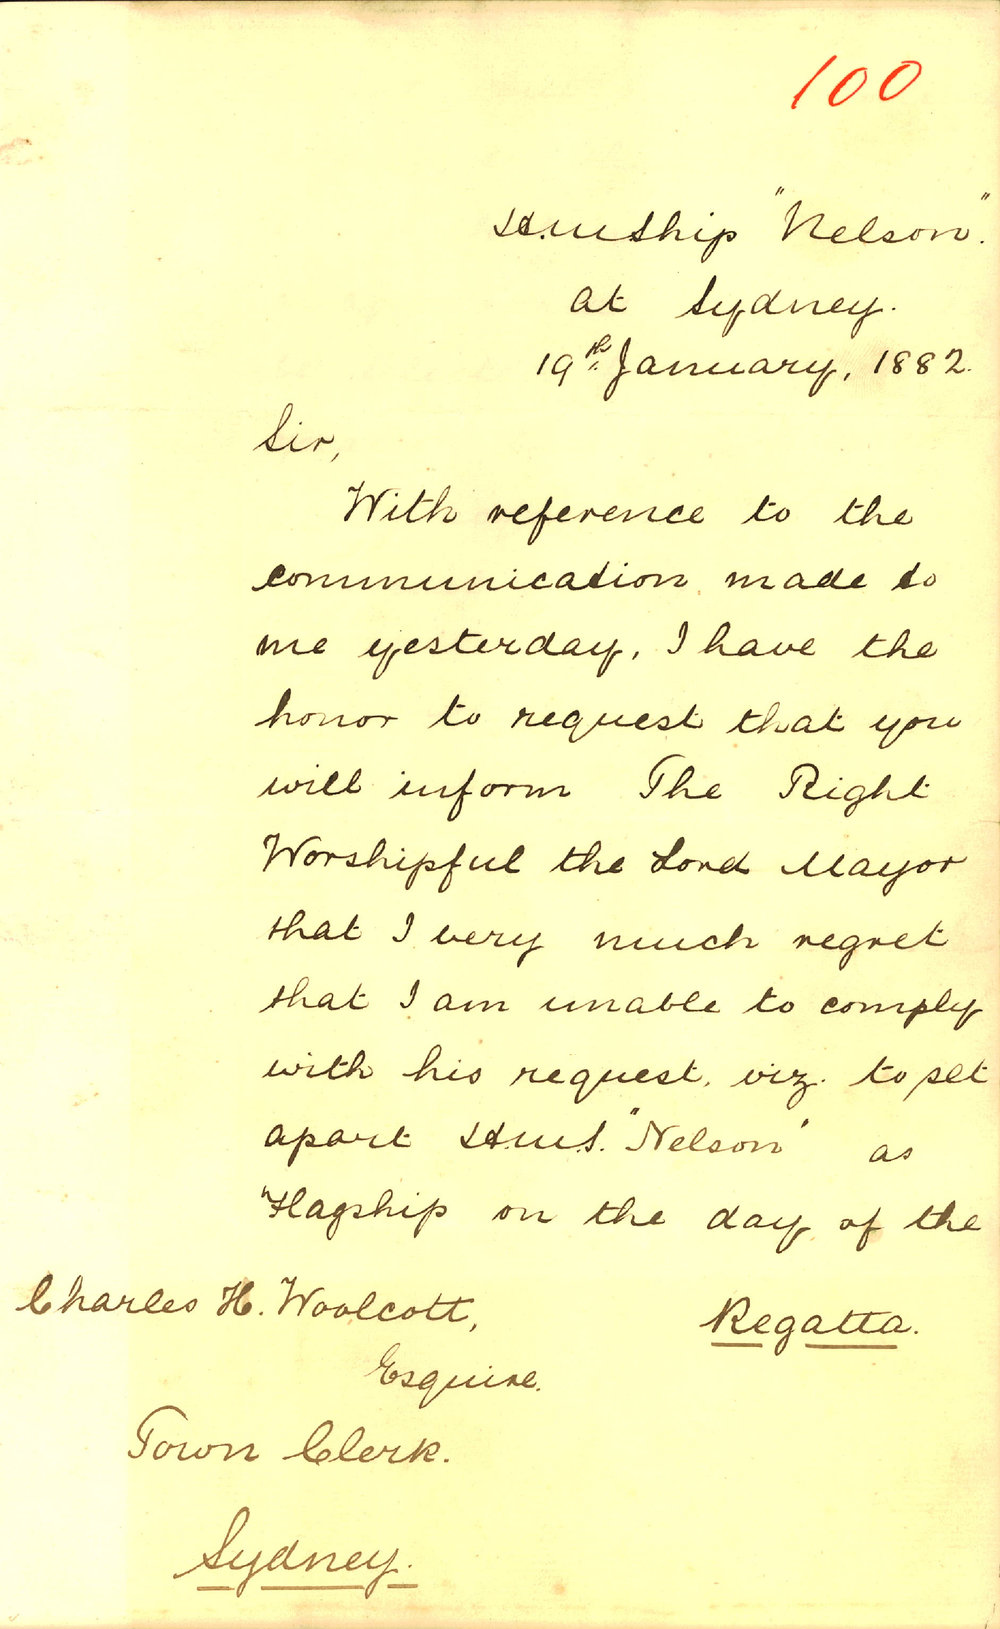 100
H.M.Ship "Nelson".
At Sydney.
19th January, 1882.
Sir,
With reference to the
communication made to
me yesterday, I have the
honor to request that you
will inform The Right
Worshipful the Lord Mayor
that I very much regret
that I am unable to comply
with his request, viz. to set
apart H.M.S. "Nelson" as
Flagship on the day of the
Regatta.
Charles H. Woolcott,
Esquire.
Town Clerk.
Sydney.